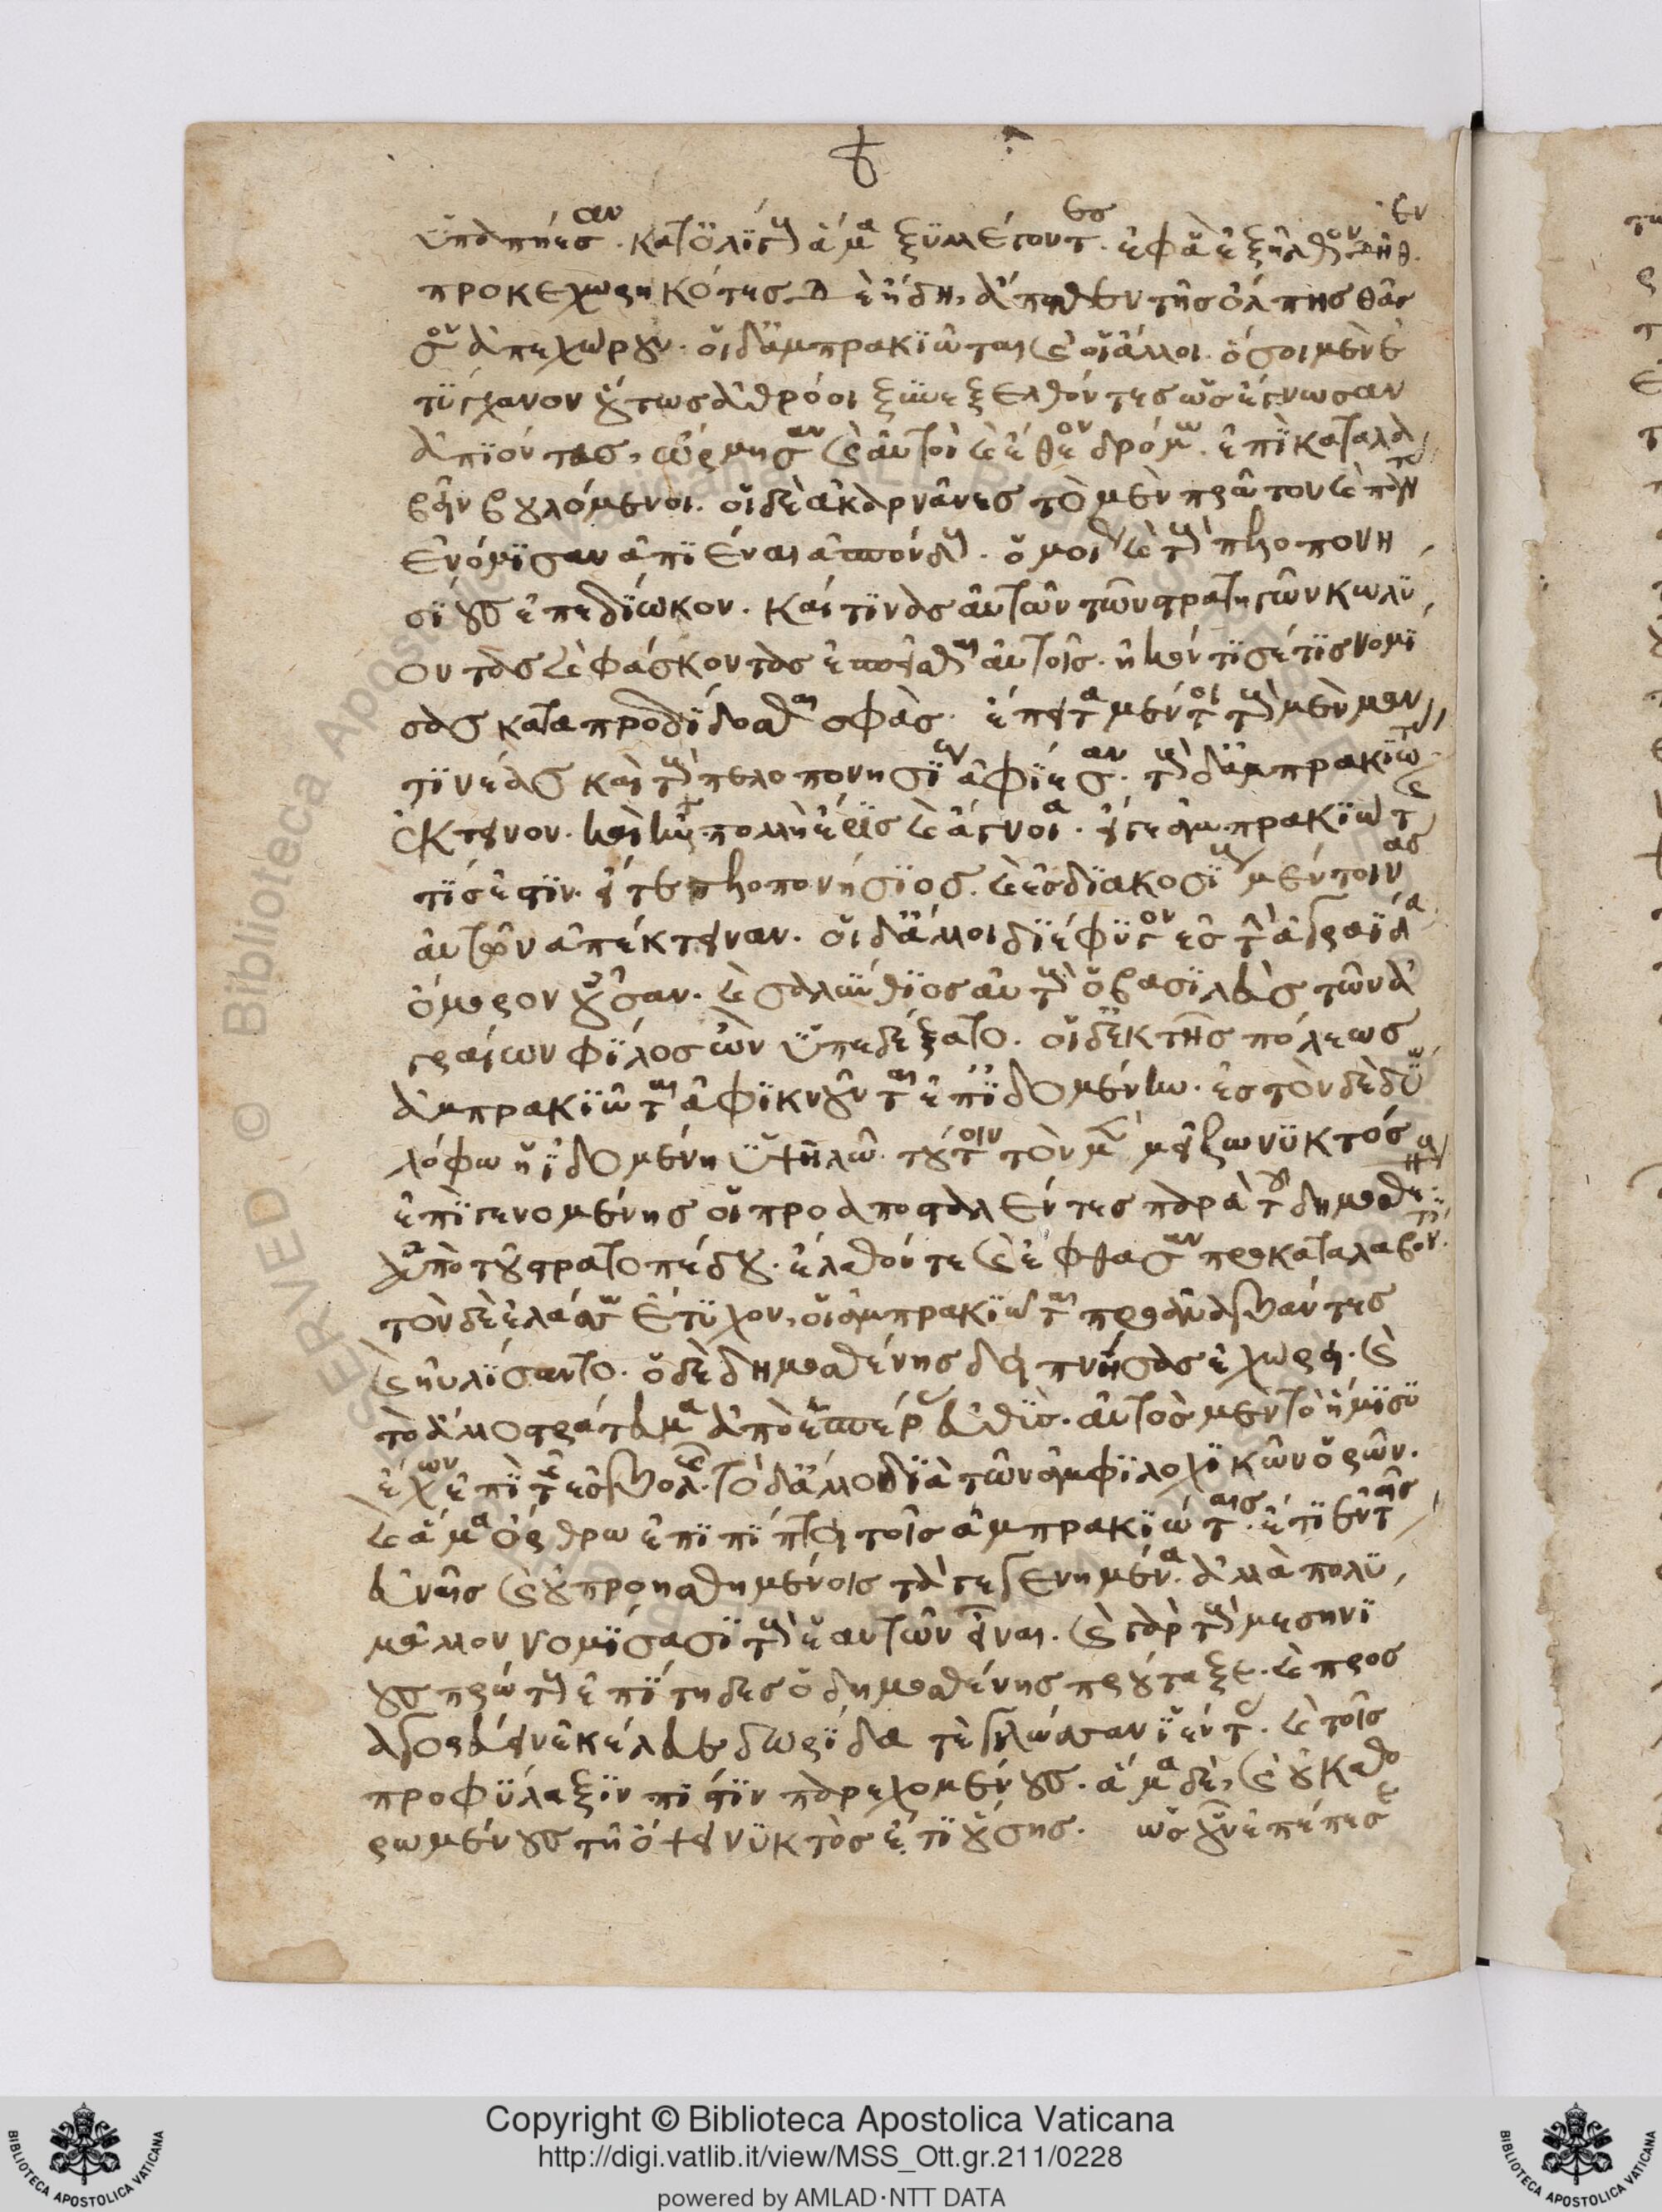 ὑπαπῄεσαν κατ' ὀλίγους ἅμα ξυλλέγοντες ἐφ' ἃ ἐξῆλθον δῆθεν
προκεχωρηκότες δὲ ἤδη, ἄπωθεν τῆς ὄλπης θᾶσ
σον ἀπεχώρουν. οἱ δ' ἀμπρακιῶται καὶ οἱ ἄλλοι. ὅσοι μὲν ἐ
τύγχανον οὕτως ἀθρόοι ξυνεξελθόντες ὡς ἔγνωσαν
ἀπιόντας, ὥρμησαν καὶ αὐτοὶ καὶ ἔθεον δρόμω. ἐπικαταλα
βεῖν βουλόμενοι. οἱ δὲ ἀκαρνᾶνες τὸ μὲν πρῶτον καὶ πάντας
ἐνόμισαν ἀπιέναι ἀσπόνδους. ὁμοίως καὶ τοὺς πελοπονη
σίους ἐπεδίωκον. καί τινας αὐτῶν τῶν στρατηγῶν κωλύ
οντας καὶ φάσκοντας ἐσπεῖσθαι αὐτοῖς. ἠκόντισέ τις νομί
σας καταπροδίδοσθαι σφᾶς. ἔπειτα μέντοι τοὺς μὲν μαν
τινέας καὶ τοὺς πελοπονησίους ἀφίεσαν. τοὺς δ' ἀμπρακιώτας
ἔκτεινον. καὶ ἦν πολλὴ ἔρις καὶ ἄγνοια. εἴτε ἀμπρακιώτης
τίς ἐστιν. εἴτε πελοπονήσιος. καὶ ἐς διακοσίους μέν τινας
αὐτῶν ἀπέκτειναν. οἱ δ' ἄλλοι διέφυγον ἐς τὴν ἀγραΐδα
ὅμορον οὖσαν. καὶ σαλύνθιος αὐτοὺς ὁ βασιλεὺς τῶν ἀ
γραίων φίλος ὢν ὑπεδέξατο. οἱ δ' ἐκ τῆς πόλεως
ἀμπρακιῶται ἀφικνοῦνται ἐπ' ἰδομένην. ἐστὸν δὲ δύω
λόφω ἡ ἰδομένη ὑψηλώ. τούτοιν τὸν μὲν μείζω νυκτὸς
ἐπιγενομένης οἱ προαποσταλέντες παρὰ τοῦ δημοσθένους
ἀπὸ τοῦ στρατοπέδου. ἔλαθόν τε καὶ ἔφθασαν προκαταλαβόντες.
τὸν δὲ ἐλάσσω ἔτυχον, οἱ ἀμπρακιῶται προαναβάντες
καὶ ηὐλίσαντο. ὁ δὲ δημοσθένης δειπνήσας ἐχώρει. καὶ
τὸ ἄλλο στράτευμα ἀπὸ ἑσπέρας εὐθύς. αὐτὸς μὲν τὸ ἥμισυ
ἔχων ἐπὶ τῆς ἐσβολῆς. τὸ δ' ἄλλο διὰ τῶν ἀμφιλοχικῶν ὀρῶν.
καὶ ἅμα ὄρθρω ἐπιπίπτει τοῖς ἀμπρακιώταις. ἔτι ἐν ταῖς
εὐναῖς καὶ οὐ προησθημένοις τὰ γεγενημένα. ἀλλὰ πολὺ
μᾶλλον νομίσασι τοὺς ἑαυτῶν εἶναι. καὶ γὰρ τοὺς μεσηνί
ους πρώτους ἐπίτηδες ὁ δημοσθένης προύταξε. καὶ προσ
αγορεύειν ἐκέλευε δωρίδα τε γλῶσσαν ἱέντας. καὶ τοῖς
προφύλαξιν πίστιν παρεχομένους. ἅμα δὲ, καὶ οὐ καθο
ρωμένους τῇ ὄψει νυκτὸς ἔτι οὔσης. ὡς οὖν ἐπέπεσε
Copyright © Biblioteca Apostolica Vaticana
http://digi.vatlib.it/view/MSS_Ott.gr.211/0228
powered by AMLAD·NTT DATA